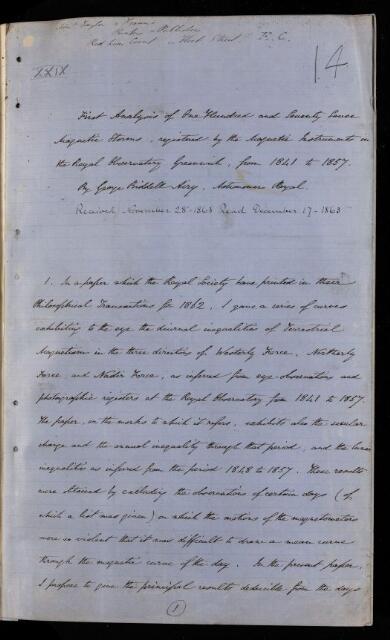 Taylor & Francis
Printers & Publishers
Red Lion Court Fleet Street E. C.
14
XXIX
First Analysis of One Hundred and Seventy Seven
Magnetic Storms, registered by the Magnetic Instruments in
the Royal Observatory Greenwich, from 1841 to 1857.
By George Biddell Airy, Astronomer Royal.
Received November 28-1863 Read December 17-1863
1. In a paper which the Royal Society have printed in their
Philosophical Transactions for 1862, I gave a series of curves
exhibiting to the eye the diurnal inequalities of Terrestrial
Magnetism in the three directions of Westerly Force, Northerly
Force, and Nadir Force, as inferred from eye-observations and
photographic registers at the Royal Observatory from 1841 to 1857.
The paper, in the marks to which it refers, exhibits also the secular
change and the annual inequality through that period, and the lunar
inequalities as inferred from the period 1848 to 1857. These results
were obtained by excluding the observations of certain days (of
which a list was given) on which the motions of the magnetometers
were so violent that it was difficult to draw a mean curve
through the magnetic curve of the day. In the present paper,
I propose to give the principal results deducible from the days
1